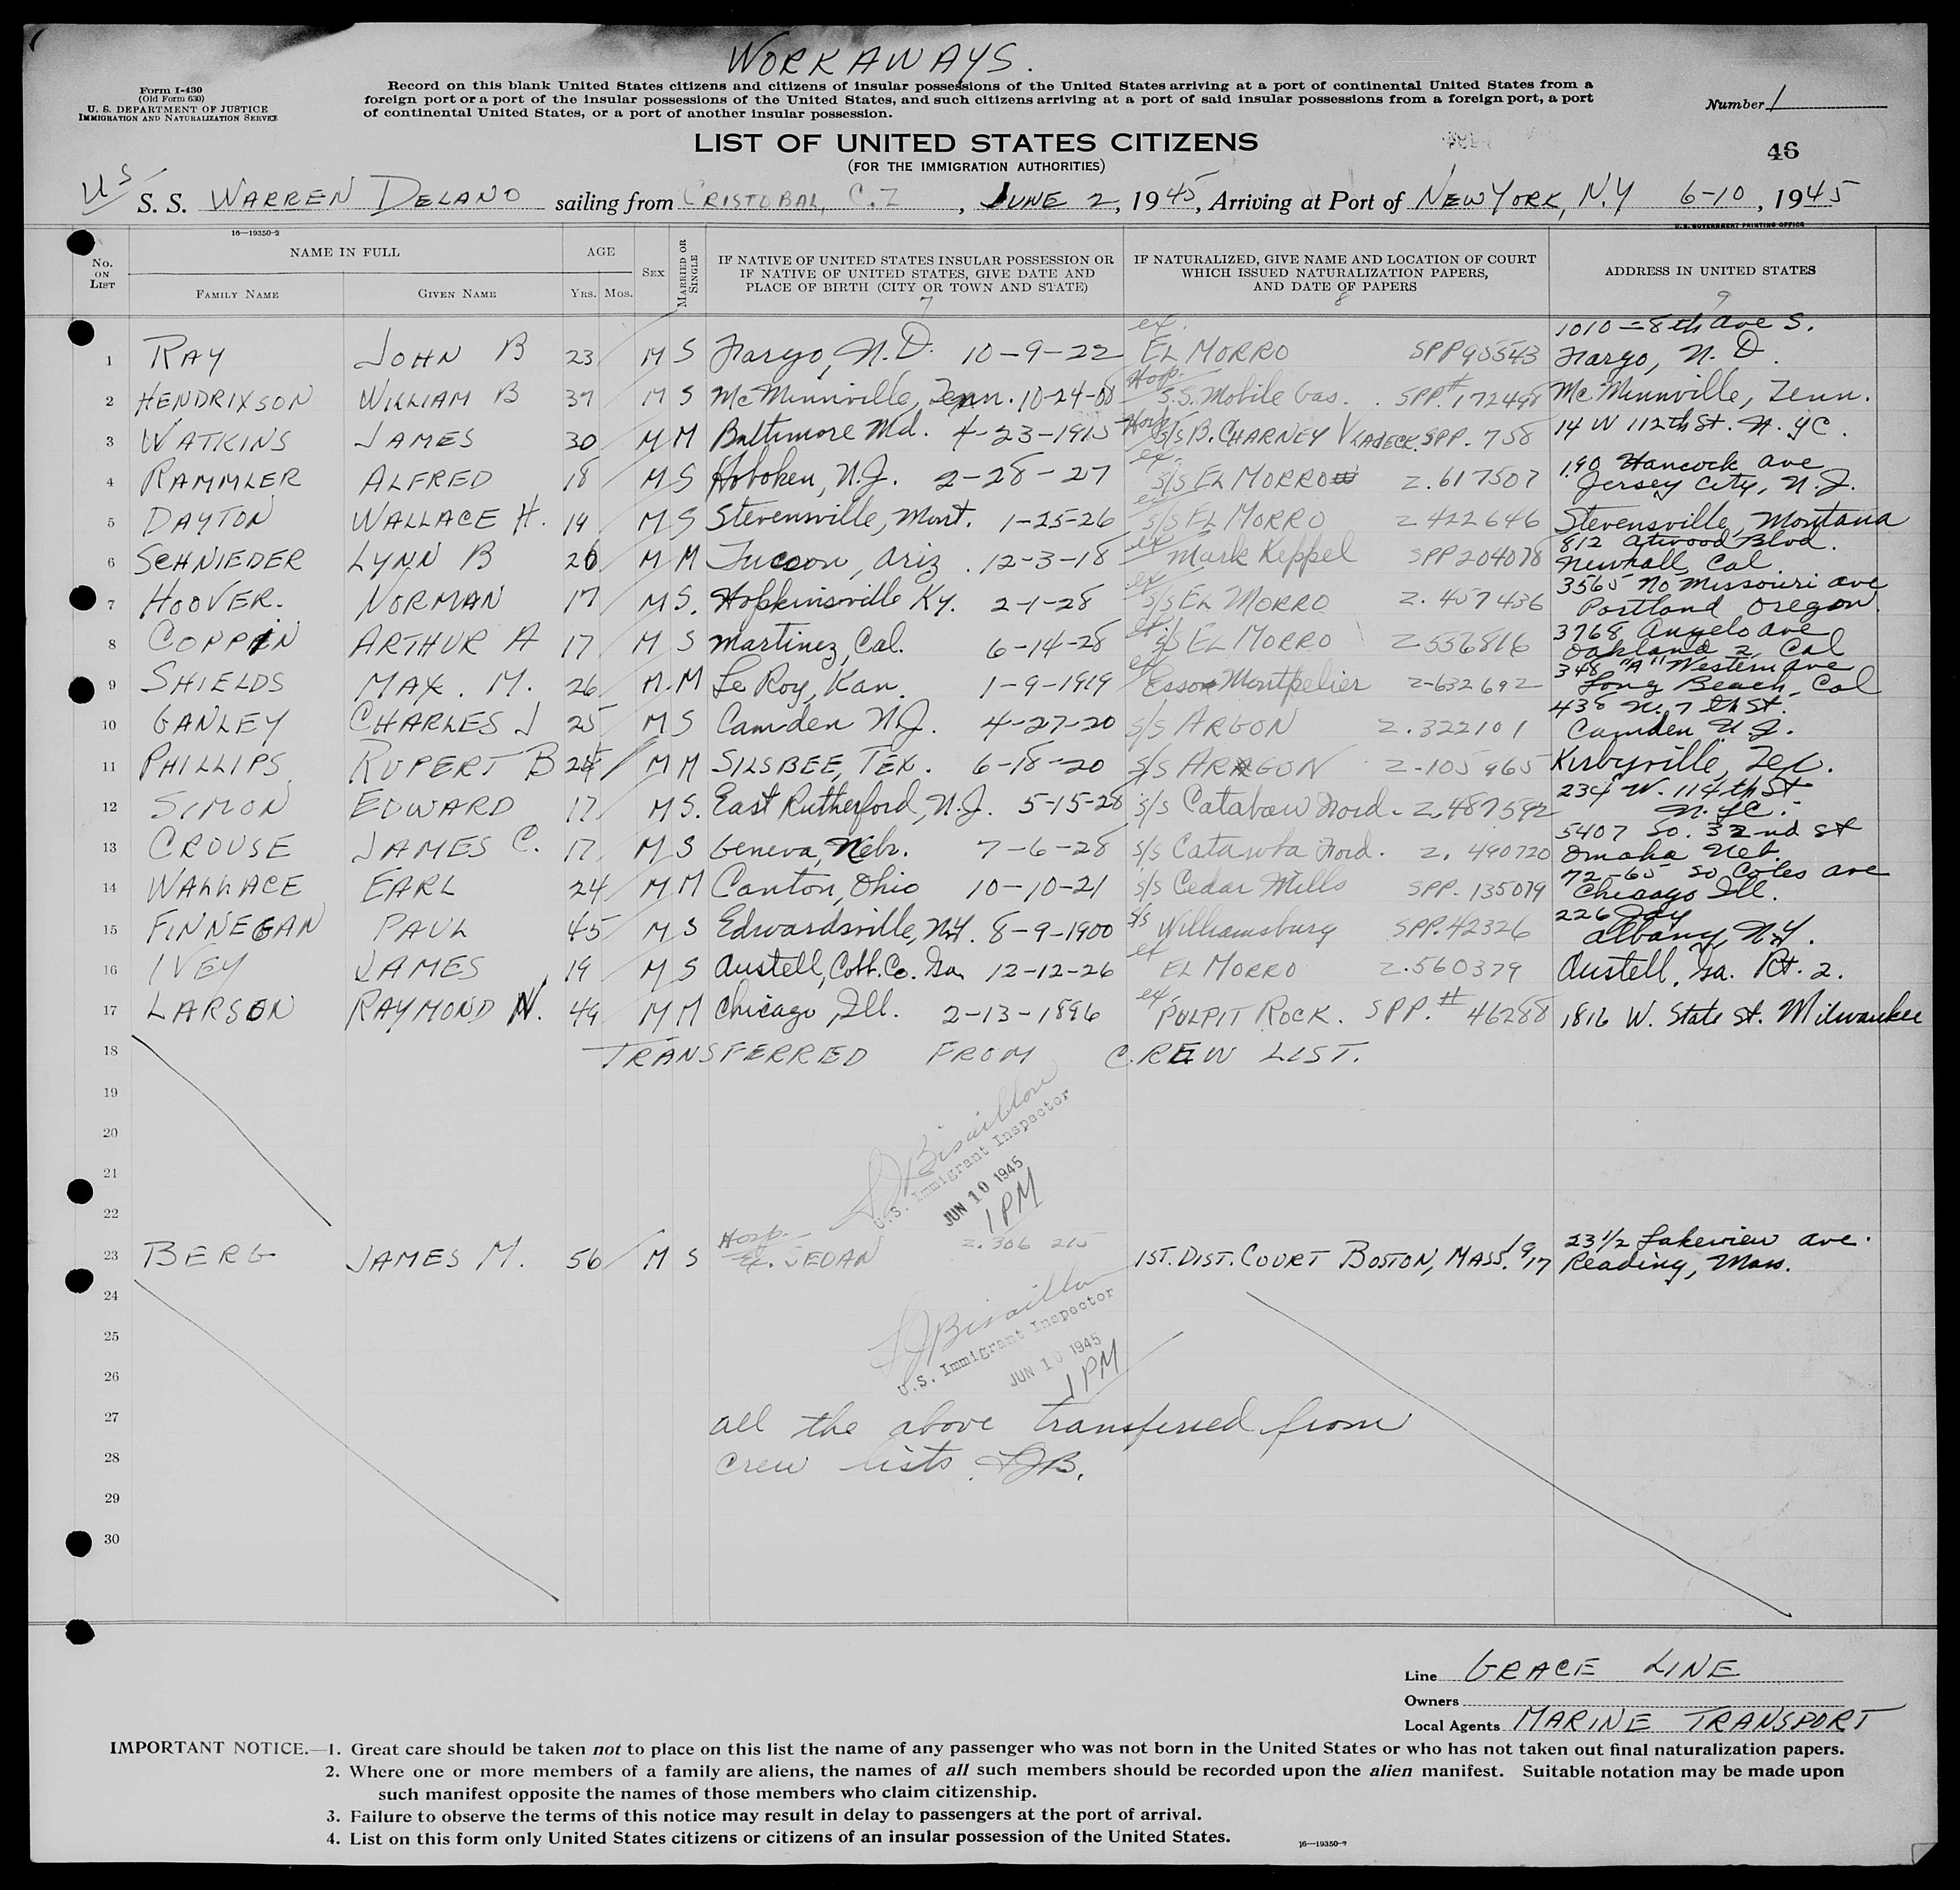 WORKAWAYS.
Form I-430
(Old Form 630)
U. S. DEPARTMENT OF JUSTICE
IMMIGRATION AND NATURALIZATION SERVICE
Record on this blank United States citizens and citizens of insular possessions of the United States arriving at a port of continental United States from a
foreign port or a port of the insular possessions of the United States, and such citizens arriving at a port of said insular possessions from a foreign port, a port
of continental United States, or a port of another insular possession.
Number 1
LIST OF UNITED STATES CITIZENS
(FOR THE IMMIGRATION AUTHORITIES)
46
US S. S. WARREN DELANO sailing from CRISTOBAL, C.Z , JUNE 2, 1945, Arriving at Port of NEW YORK, N.Y 6-10, 1945
16—19350-2
U. S. GOVERNMENT PRINTING OFFICE
No. ON LIST
NAME IN FULL
FAMILY NAME
GIVEN NAME
AGE
YRS. MOS.
SEX
MARRIED OR SINGLE
IF NATIVE OF UNITED STATES INSULAR POSSESSION OR
IF NATIVE OF UNITED STATES, GIVE DATE AND
PLACE OF BIRTH (CITY OR TOWN AND STATE)
7
IF NATURALIZED, GIVE NAME AND LOCATION OF COURT
WHICH ISSUED NATURALIZATION PAPERS,
AND DATE OF PAPERS
8
ADDRESS IN UNITED STATES
9
1 RAY JOHN B 23 M S Fargo, N.D. 10-9-22 ex. EL MORRO SPP95543 1010 - 8th Ave S. Fargo, N.D.
2 HENDRIXSON WILLIAM B 37 M S McMinnville, Tenn. 10-24-08 Hosp. S.S. Mobile Gas. SPP.# 172498 McMinnville, Tenn.
3 WATKINS JAMES 30 M M Baltimore Md. 4-23-1915 Hosp S/S B. CHARNEY VLADECK. SPP. 758 14 W 112th St. N.YC.
4 RAMMLER ALFRED 18 M S Hoboken, N.J. 2-28-27 ex. S/S EL MORRO Z.617507 190 Hancock ave Jersey City, N.J.
5 DAYTON WALLACE H. 19 M S Stevensville, Mont. 1-25-26 ex S/S EL MORRO Z 422646 Stevensville, Montana
6 SCHNIEDER LYNN B 26 M M Tucson, Ariz. 12-3-18 ex Mark Keppel SPP 204078 812 Atwood Blvd. Newhall, Cal.
7 HOOVER. NORMAN 17 M S. Hopkinsville Ky. 2-1-28 ex S/S EL MORRO Z. 457436 3565 No Missouri ave Portland Oregon.
8 COPPIN ARTHUR A 17 M S Martinez, Cal. 6-14-28 ex S/S EL MORRO Z-556816 3768 Angelo ave Oakland 2, Cal
9 SHIELDS MAX. M. 26 M. M Le Roy, Kan. 1-9-1919 ex Esso Montpelier Z-632692 348 "A" Western ave Long Beach, Cal
10 GANLEY CHARLES J 25 M S Camden N.J. 4-27-20 S/S ARGON Z.322101 438 N. 7th St. Camden N.J.
11 PHILLIPS RUPERT B 24 M M SILSBEE, TEX. 6-18-20 S/S ARAGON Z-105965 Kirbyville, Tex.
12 SIMON EDWARD 17 M S. East Rutherford, N.J. 5-15-28 S/S Catabaw Nord. Z.487592 234 W. 114th St N.YC.
13 CROUSE JAMES C. 17 M S Geneva, Nebr. 7-6-28 S/S Catawba Ford. Z. 490720 5407 So. 32nd St Omaha Neb.
14 WALLACE EARL 24 M M Canton, Ohio 10-10-21 S/S Cedar Mills SPP. 135079 72-65 So Coles ave Chicago Ill.
15 FINNEGAN PAUL 45 M S Edwardsville, N.Y. 8-9-1900 S/S Williamsburg SPP. 42326 226 Jay Albany, N.Y.
16 IVEY JAMES 19 M S Austell, Cobb. Co. Ga. 12-12-26 ex EL MORRO Z.560379 Austell, Ga. Rt. 2.
17 LARSON RAYMOND N. 49 M M Chicago, Ill. 2-13-1896 ex. PULPIT ROCK. SPP.# 46288 1816 W. State St. Milwaukee
18 TRANSFERRED FROM CREW LIST.
19
20
21
22
U.S. Immigrant Inspector
JUN 10 1945
1 PM
23 BERG JAMES M. 56 M S Hosp. Ex. SEDAN Z.306 215 1ST. DIST. COURT BOSTON, MASS. 1917 23 1/2 Lakeview ave. Reading, Mass.
24
25
U.S. Immigrant Inspector
JUN 10 1945
1 PM
26
27 all the above transferred from
28 crew lists
29
30
Line GRACE LINE
Owners
Local Agents MARINE TRANSPORT
IMPORTANT NOTICE.—1. Great care should be taken not to place on this list the name of any passenger who was not born in the United States or who has not taken out final naturalization papers.
2. Where one or more members of a family are aliens, the names of all such members should be recorded upon the alien manifest. Suitable notation may be made upon
such manifest opposite the names of those members who claim citizenship.
3. Failure to observe the terms of this notice may result in delay to passengers at the port of arrival.
4. List on this form only United States citizens or citizens of an insular possession of the United States.
16—19350-2